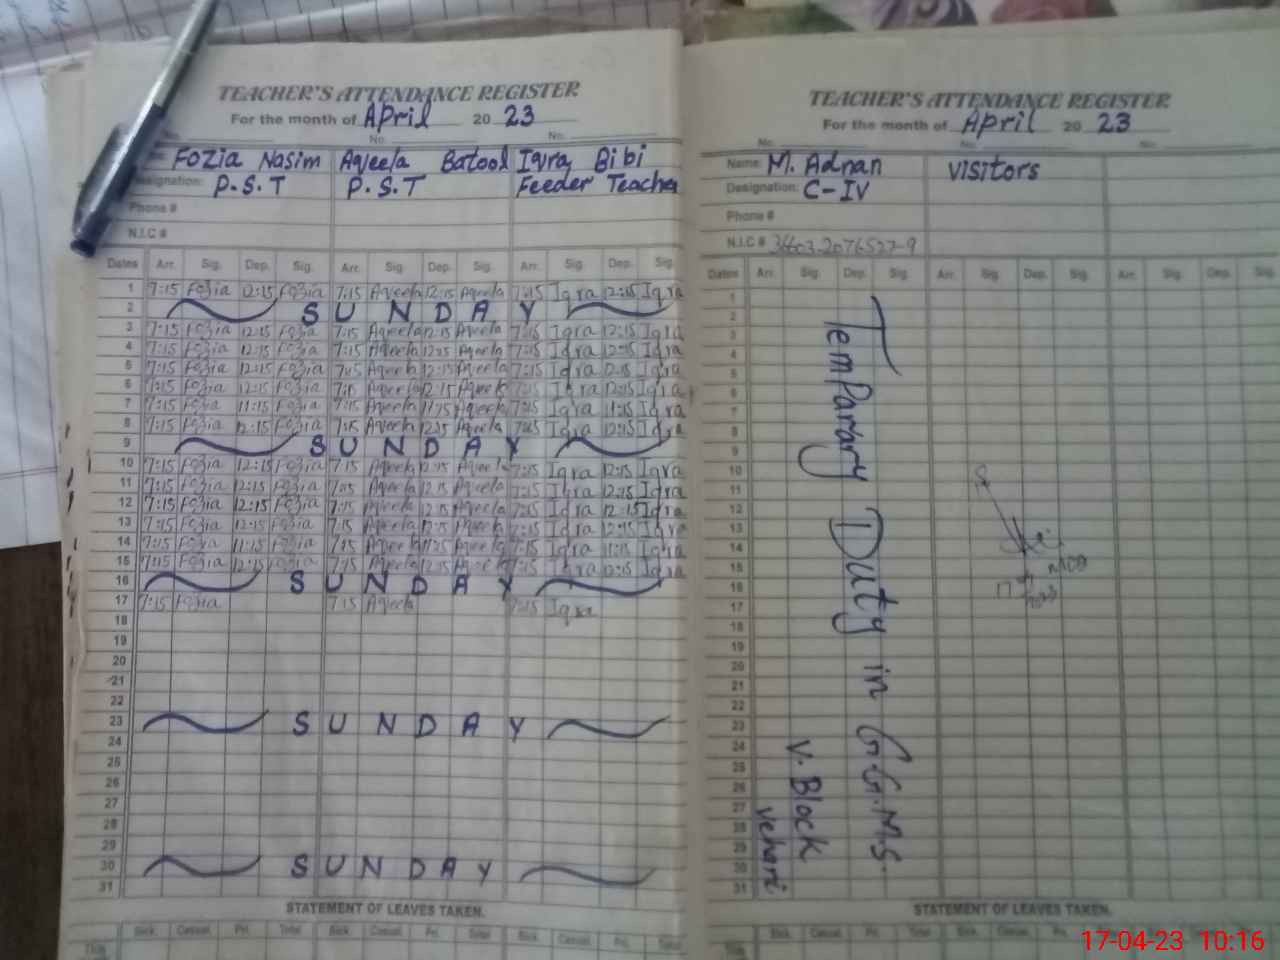 TEACHER'S ATTENDANCE REGISTER
For the month of April 20 23
No. No. No.
Fozia Nasim Aqeela Batool Iqra Bibi
Designation: P.S.T P.S.T Feeder Teacher
Phone #
N.I.C #
Dates Arr. Sig. Dep. Sig. Arr. Sig. Dep. Sig. Arr. Sig. Dep. Sig.
1 7:15 Fozia 12:15 Fozia 7:15 Aqeela 12:15 Aqeela 7:15 Iqra 12:15 Iqra
2 SUNDAY
3 7:15 Fozia 12:15 Fozia 7:15 Aqeela 12:15 Aqeela 7:15 Iqra 12:15 Iqra
4 7:15 Fozia 12:15 Fozia 7:15 Aqeela 12:15 Aqeela 7:15 Iqra 12:15 Iqra
5 7:15 Fozia 12:15 Fozia 7:15 Aqeela 12:15 Aqeela 7:15 Iqra 12:15 Iqra
6 7:15 Fozia 12:15 Fozia 7:15 Aqeela 12:15 Aqeela 7:15 Iqra 12:15 Iqra
7 7:15 Fozia 11:15 Fozia 7:15 Aqeela 11:15 Aqeela 7:15 Iqra 11:15 Iqra
8 7:15 Fozia 12:15 Fozia 7:15 Aqeela 12:15 Aqeela 7:15 Iqra 12:15 Iqra
9 SUNDAY
10 7:15 Fozia 12:15 Fozia 7:15 Aqeela 12:15 Aqeela 7:15 Iqra 12:15 Iqra
11 7:15 Fozia 12:15 Fozia 7:15 Aqeela 12:15 Aqeela 7:15 Iqra 12:15 Iqra
12 7:15 Fozia 12:15 Fozia 7:15 Aqeela 12:15 Aqeela 7:15 Iqra 12:15 Iqra
13 7:15 Fozia 12:15 Fozia 7:15 Aqeela 12:15 Aqeela 7:15 Iqra 12:15 Iqra
14 7:15 Fozia 11:15 Fozia 7:15 Aqeela 11:15 Aqeela 7:15 Iqra 11:15 Iqra
15 7:15 Fozia 12:15 Fozia 7:15 Aqeela 12:15 Aqeela 7:15 Iqra 12:15 Iqra
16 SUNDAY
17 7:15 Fozia 7:15 Aqeela 7:15 Iqra
18
19
20
21
22
23 SUNDAY
24
25
26
27
28
29
30 SUNDAY
31
STATEMENT OF LEAVES TAKEN.
Sick. Casual. Pri. Total Sick. Casual. Pri. Total Sick. Casual. Pri. Total
This
TEACHER'S ATTENDANCE REGISTER
For the month of April 20 23
No. No. No.
Name: M. Adnan visitors
Designation: C-IV
Phone #
N.I.C # 36603-2076527-9
Dates Arr. Sig. Dep. Sig. Arr. Sig. Dep. Sig. Arr. Sig. Dep. Sig.
1
2
3
4
5
6
7
8
9
10
11
12
13
14
15
16
17
18
19
20
21
22
23
24
25
26
27
28
29
30
31
Temparary Duty in G.G.M.S.
V. Block
vehari
STATEMENT OF LEAVES TAKEN.
Sick. Casual. Pri. Total Sick. Casual. Pri.
This
17-04-23 10:16